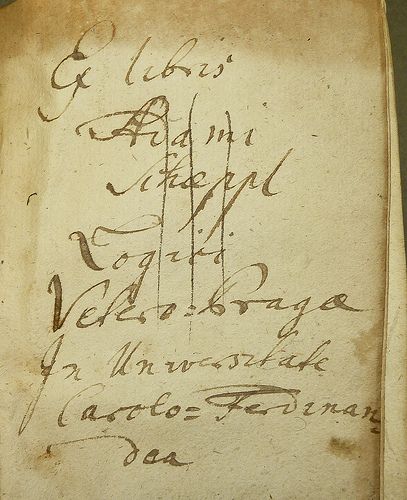 Ex libris
Adami
Schæppl
Logici
Vetero=Pragæ
In Universitate
Carolo=Ferdinan=
dea